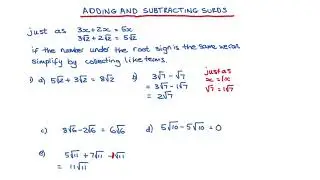 ADDING AND SUBTRACTING SURDS
just as 3x+2x = 5x
3√2+2√2 = 5√2
if the number under the root sign is the same we can
simplify by collecting like terms.
1) a) 5√2 + 3√2 = 8√2
b) 3√7 - √7
= 3√7 - 1√7
= 2√7
just as
x = 1x
√7 = 1√7
c) 8√6 - 2√6 = 6√6
d) 5√10 - 5√10 = 0
e) 5√11 + 7√11 - 1√11
= 11√11